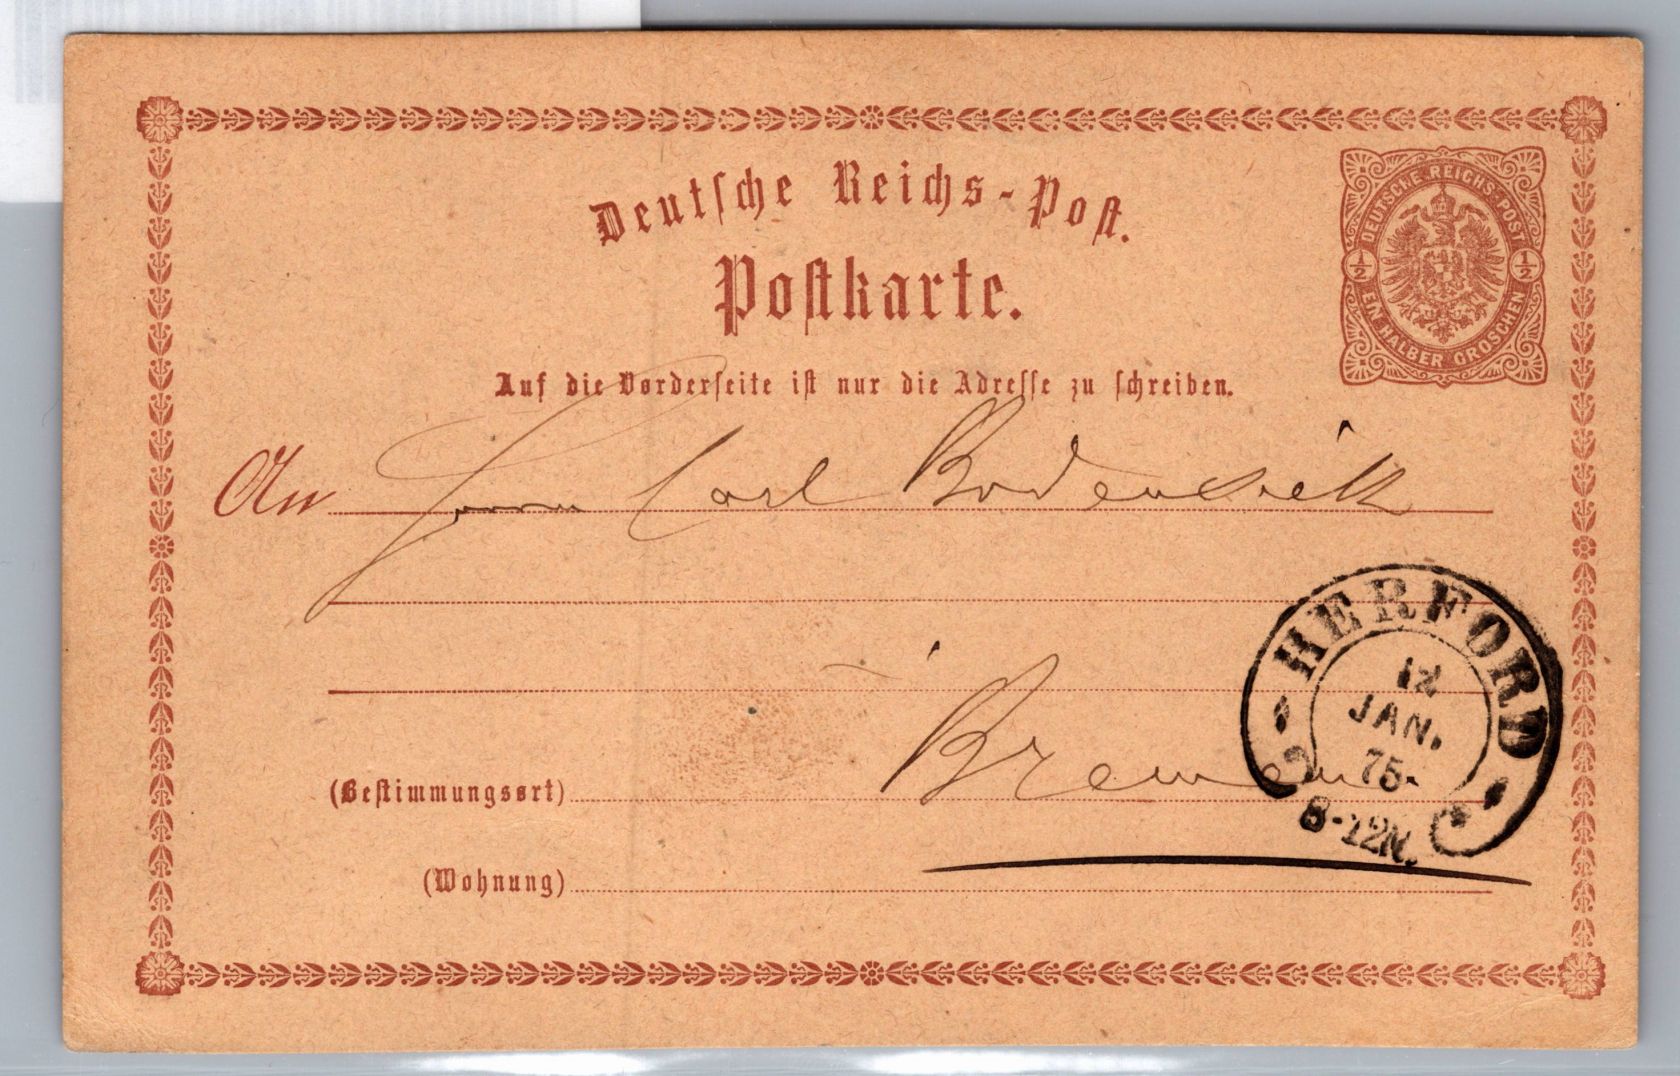 Deutsche Reichs-Post.
Postkarte.
DEUTSCHE REICHS-POST
1/2 1/2
EIN HALBER GROSCHEN
Auf die Vorderseite ist nur die Adresse zu schreiben.
An Herrn Carl Bodensiek
HERFORD
12
JAN.
75.
8-12N.
(Bestimmungsort) Bremen
(Wohnung)